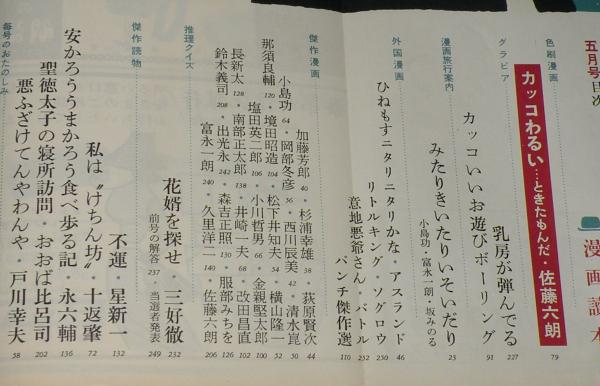 五月号目次
漫画読本
色刷漫画
カッコわるい…ときたもんだ・佐藤六朗 79
グラビア
乳房が弾んでる 227
カッコいいお遊びボーリング 91
漫画旅行案内
みたりきいたりいそいだり
小島功・富永一朗・坂みのる 23
外国漫画
ひねもすニタリニタリかな・アスランド 46
リトルキング・ソグロウ 250
意地悪爺さん・バトル 232
パンチ傑作選 110
傑作漫画
加藤芳郎 40・杉浦幸雄 38・荻原賢次 44
小島功 64・岡部冬彦 36・西川辰美 42・清水崑 50
那須良輔 120・境田昭造 104・松下井知夫 54・横山隆一 52
塩田英二郎 106・小川哲男 66・金親堅太郎 100
長新太 128・南部正太郎 138・井崎一夫 68・改田昌直 102
鈴木義司 208・出光永 242・森吉正照 130・服部みちを 126
富永一朗 240・久里洋二 140・佐藤六朗 206
推理クイズ
花婿を探せ・三好徹 232
前号の解答 237・当選者発表 249
傑作読物
不運・星新一 132
私は〝けちん坊〟・十返肇 72
安かろううまかろう食べ歩る記・永六輔 136
聖徳太子の寝所訪問・おおば比呂司 202
悪ふざけてんやわんや・戸川幸夫 58
毎号のおたのしみ